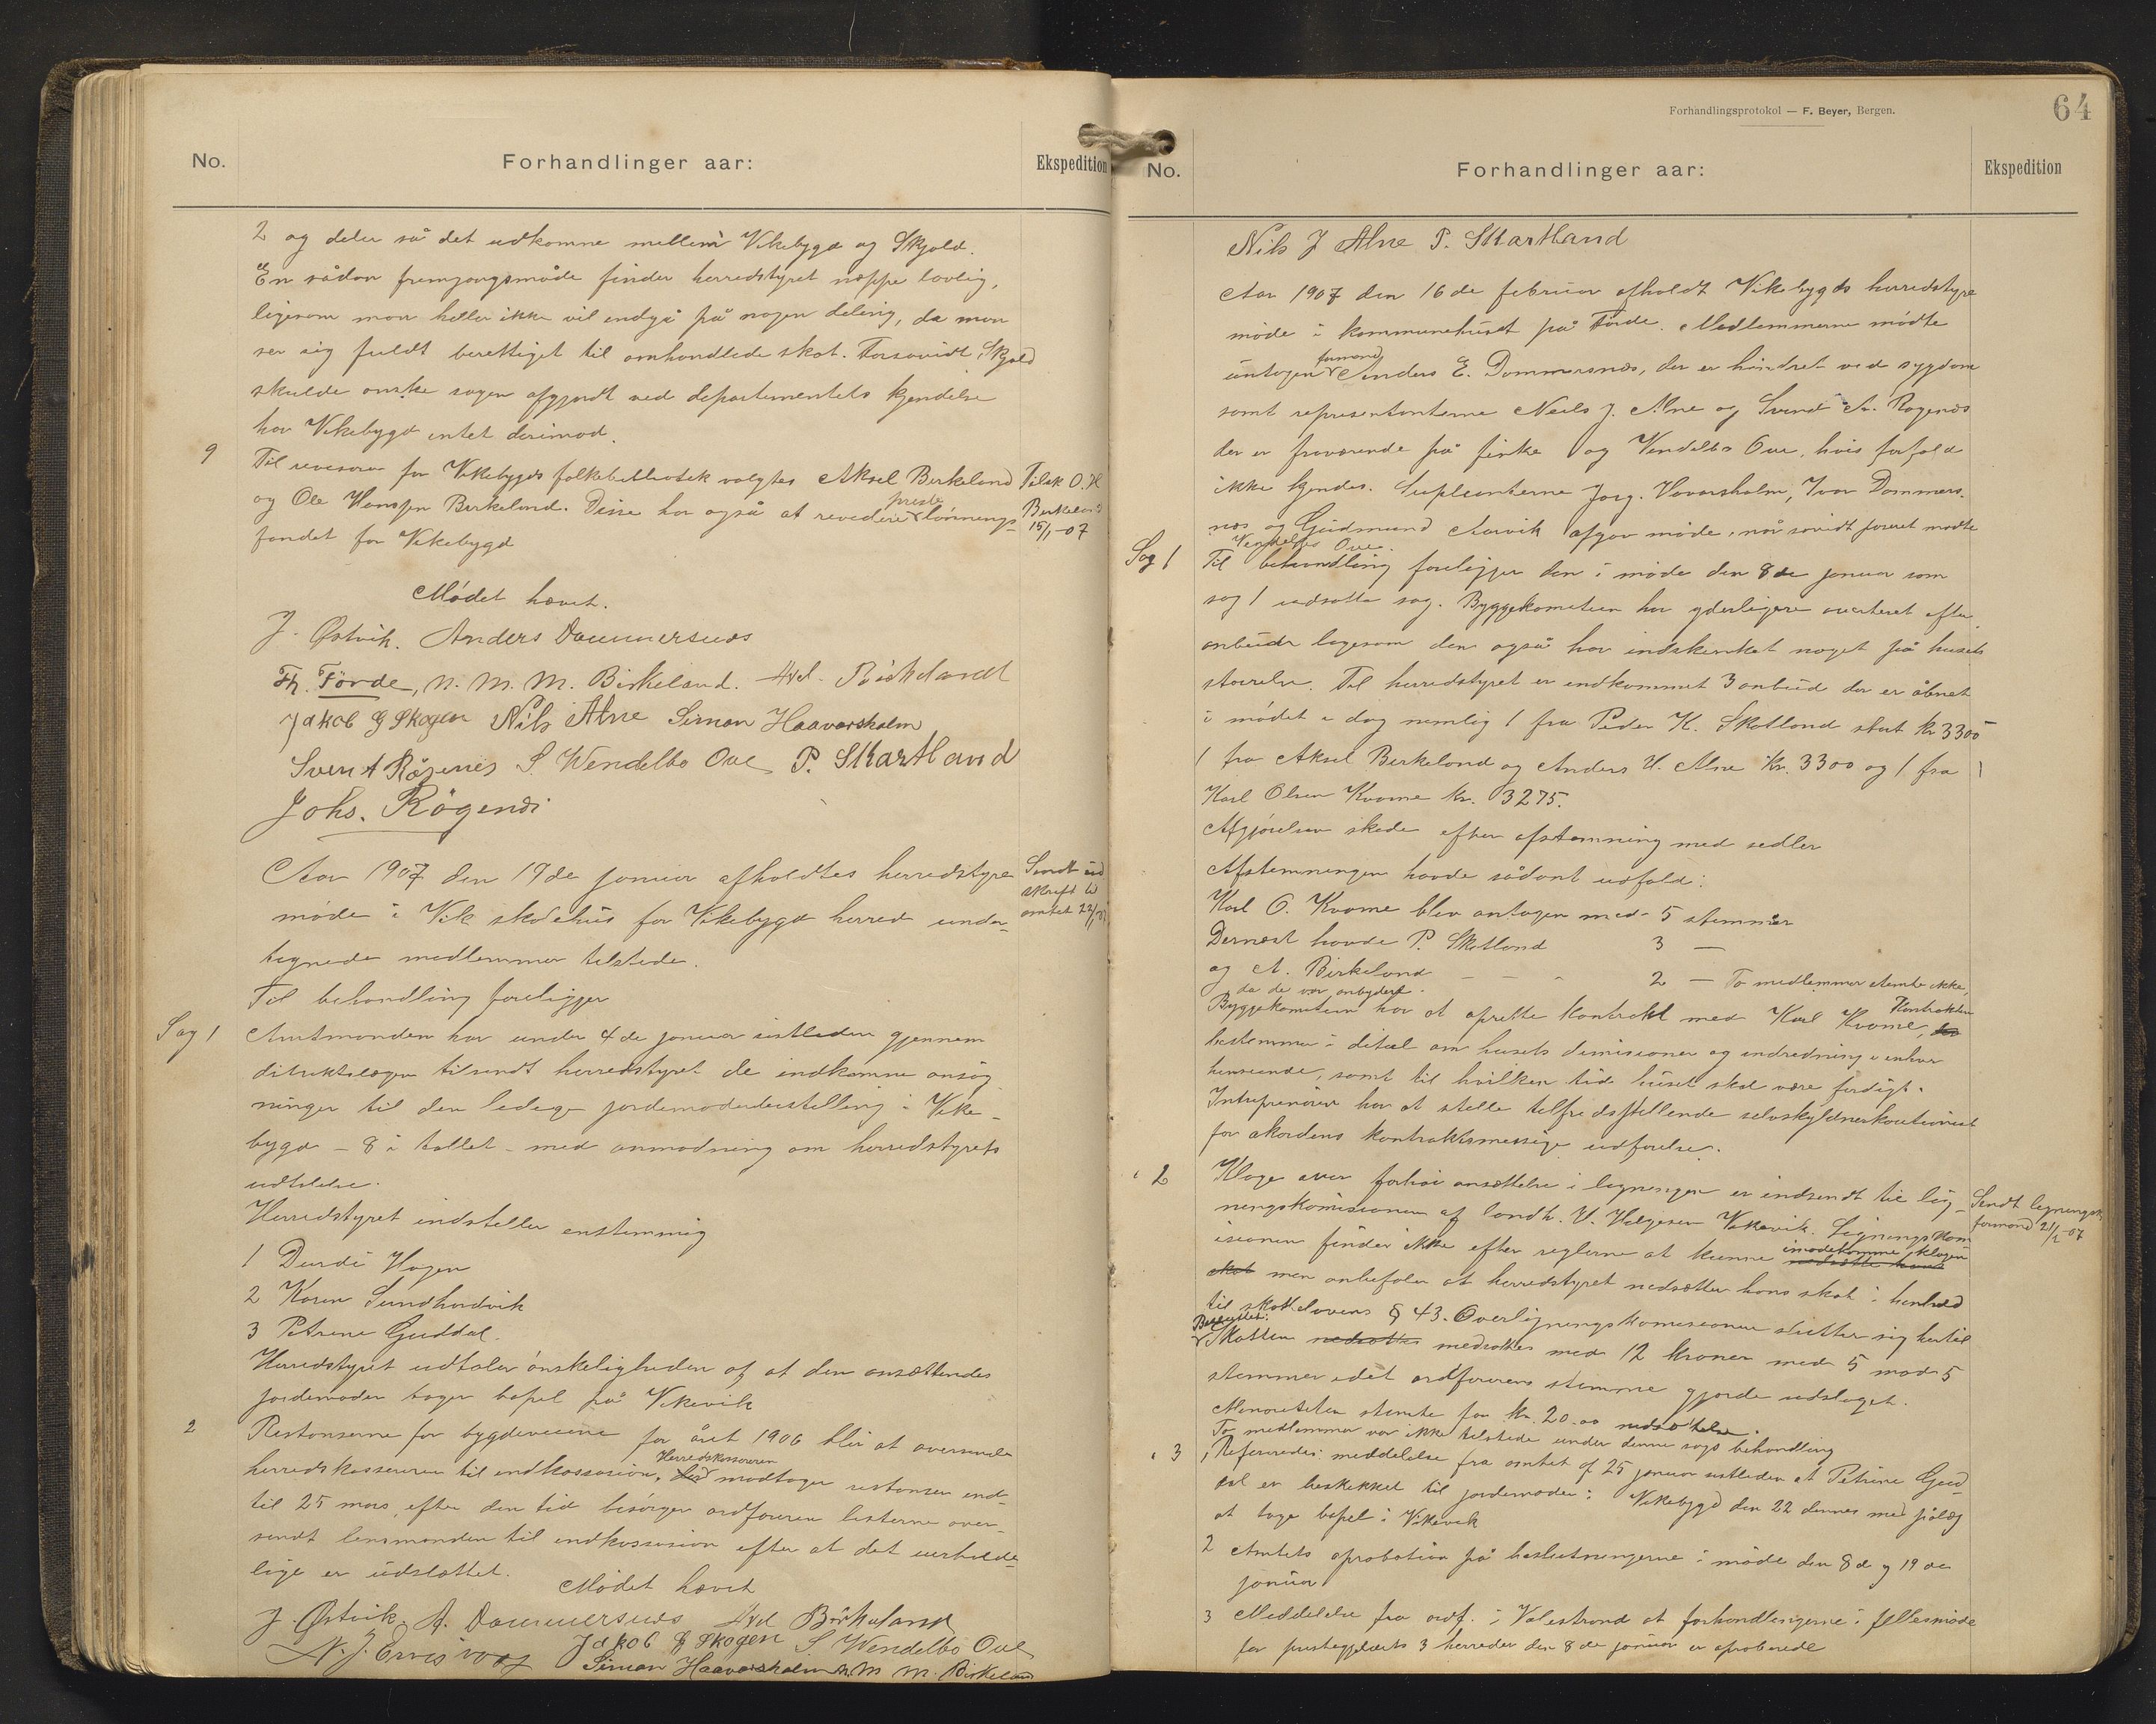 No.
Forhandlinger aar:
Ekspedition
2 og deler så det udkomne mellem Vikebygd og Skjold.
En sådan fremgangsmåde finder herredstyret neppe lovlig,
ligesom man heller ikke vil indgå på nogen deling, da man
ser sig fuldt berettiget til omhandlede skat. Forsåvidt Skjold
skulde ønske sagen afgjordt ved departementets kjendelse
har Vikebygd intet derimod.
9 Til revisorer for Vikebygds folkebibliothek valgtes Aksel Birkeland
og Ole Hanssen Birkeland. Disse har også at revidere preste lønnings-
fondet for Vikebygd
Tilsk O. H
Birkeland
15/1-07
Mødet hævet.
J. Østvik. Anders Dommersnes
Th. Førde, N. M. M. Birkeland. Axel Birkelandt
Jakob G Skogen Nils Alne Simon Haavarsholm
Svent A Røgenes S. Wendelbo Ove P. Skartland
Johs. Røgenes
Aar 1907 den 19de januar afholdtes herredstyre
møde i Vik skolehus for Vikebygd herred under-
tegnede medlemmer tilstede.
Sendt ud
skrift til
amtet 22/1 07
Til behandling foreligger
Sag 1 Amtmanden har under 4de januar sistleden gjennem
distriktslægen tilsendt herredstyret de indkomne ansøg
ninger til den ledige jordemoderbestilling i Vike-
bygd - 8 i tallet - med anmodning om herredstyrets
udtalelse.
Herredstyret indstiller enstemmig
1 Durdi Hagen
2 Karen Sundhordvik
3 Petrine Guddal.
Herredstyret udtaler ønskeligheden af at den ansættendes
jordemoder tager bopel på Vikevik
2 Restanserne for bygdeveiene for året 1906 blir at oversende
herredskassereren til indkassasion. Herredskassereren modtager restanser ind-
til 25 mars, efter den tid besørger ordføreren listerne over-
sendt lensmanden til indkassasion efter at det uerholde-
lige er udslettet.
Mødet hævet
J. Østvik. A. Dommersnes Axel Birkeland
Jakob G Skogen S Wendelbo Ove
Simon Haavarsholm N. M M. Birkeland
Forhandlingsprotokol — F. Beyer, Bergen.
64
No.
Forhandlinger aar:
Ekspedition
Nils J Alne P. Skartland
Aar 1907 den 16de februar afholdt Vikebygds herredstyre
møde i kommunehuset på Førde. Medlemmerne mødte
untagen formand Anders E. Dommersnes, der er hindret ved sygdom
samt representanterne Neils J. Alne og Svend A. Røgenes
der er fraværende på fiske og Vendelbo Ove, hvis forfald
ikke kjendes. Supleanterne Jorg. Havarsholm, Ivar Dommers-
nes og Gudmund Aarvik afgav møde, når såvidt foreret mødte
Vendelbo Ove.
Sag 1 Til behandling foreligger den i møde den 8de januar som
sag 1 udsatte sag. Byggekomiteen har yderligere averteret efter
anbud ligesom den også har indskrenket noget på husets
størrelse. Til herredstyret er indkommet 3 anbud der er åbnet
i mødet i dag nemlig 1 fra Peder K. Skotland stort kr 3300
1 fra Aksel Birkeland og Anders H. Alne kr. 3300 og 1 fra
Karl Olsen Kvame kr. 3275.
Afgjørelsen skede efter afstemning med sedler
Afstemningen havde sådant udfald:
Karl O. Kvame blev antagen med 5 stemmer
Dernest havde P. Skotland 3 —
og A. Birkeland - - - 2 — To medlemmer stemte ikke,
da de var anbydere.
Byggekomiteen har at oprette kontrakt med Karl Kvame, Kontrakten
bestemmer i ditæl om husets dimisioner og indredning i enhver
henseende, samt til hvilken tid huset skal være ferdigt.
Intreprenøren har at stelle tilfredsstillende selvskyldnerkautionist
for akordens kontraktsmessige udførelse.
" 2 Klage over forhøi ansættelse i ligningen er indsendt til lig-
ningskomisionen af landh. V. Helgesen Vikevik. Ligningskom
isionen finder ikke efter reglerne at kunne imødekomme klagen
skat men anbefaler at herredstyret nedsætter hans skat i henhold
til skattelovens § 43. Overligningskomisionen slutter sig hertil
Besluttet:
Skatten nedsattes nedsattes med 12 kroner med 5 mod 5
stemmer idet ordførerens stemme gjorde udslaget.
Minoriteten stemte for kr. 20.00 nedsættelse.
To medlemmer var ikke tilstede under denne sags behandling
Sendt lignings
formand 21/2-07
" 3 1 Refereredes: meddelelse fra amtet af 25 januar sistleden at Petrine Gud
dal er beskikket til jordemoder i Vikebygd den 22 dennes med pålæg
at tage bopel i Vikevik
2 Amtets aprobation på beslutningerne i møde den 8de og 19de
januar
3 Meddelelse fra ordf. i Valestrand at forhandlingerne i fellesmøde
for prestegjeldets 3 herreder den 8de januar er aproberede